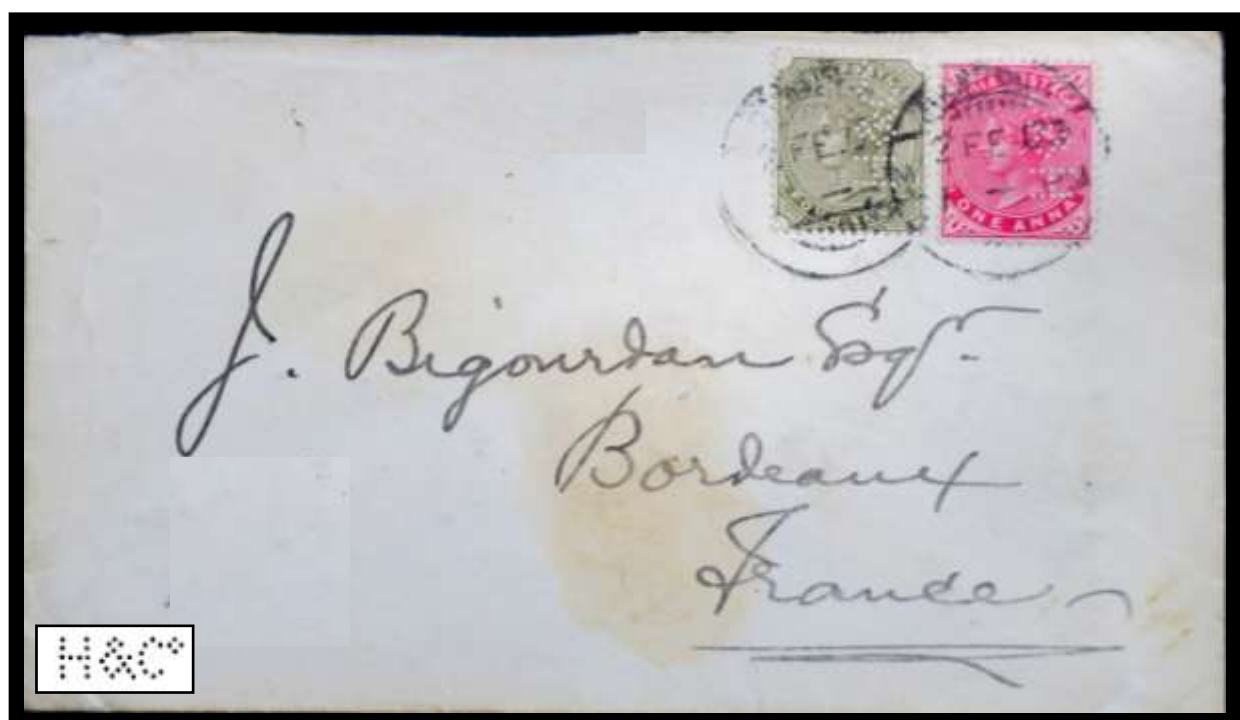 FE 13
2 FE 03
ONE ANNA
J. Bigourdan Esqr.
Bordeaux
France
H&Co